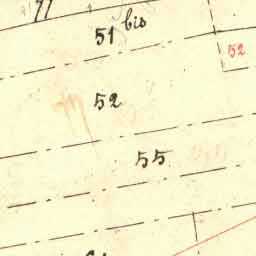 51 bis
52
52
55